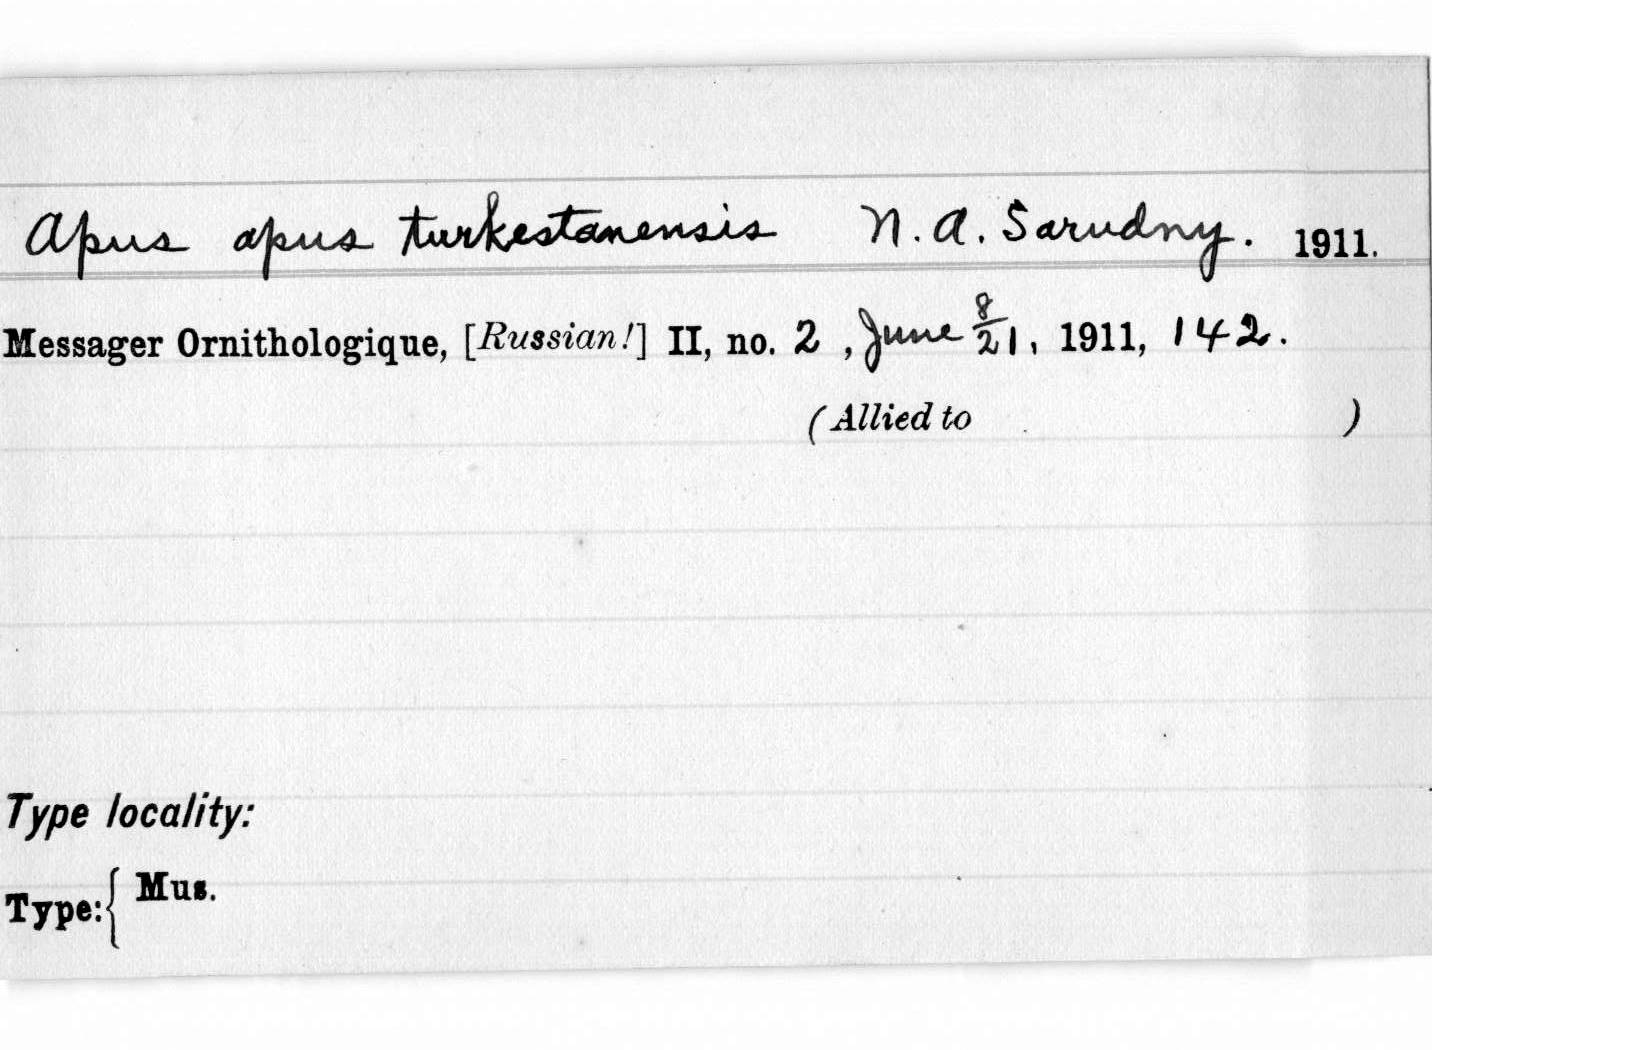 Apus apus turkestanensis N. A. Sarudny. 1911.
Messager Ornithologique, [Russian!] II, no. 2, June 8/21, 1911, 142.
(Allied to )
Type locality:
Type: { Mus.